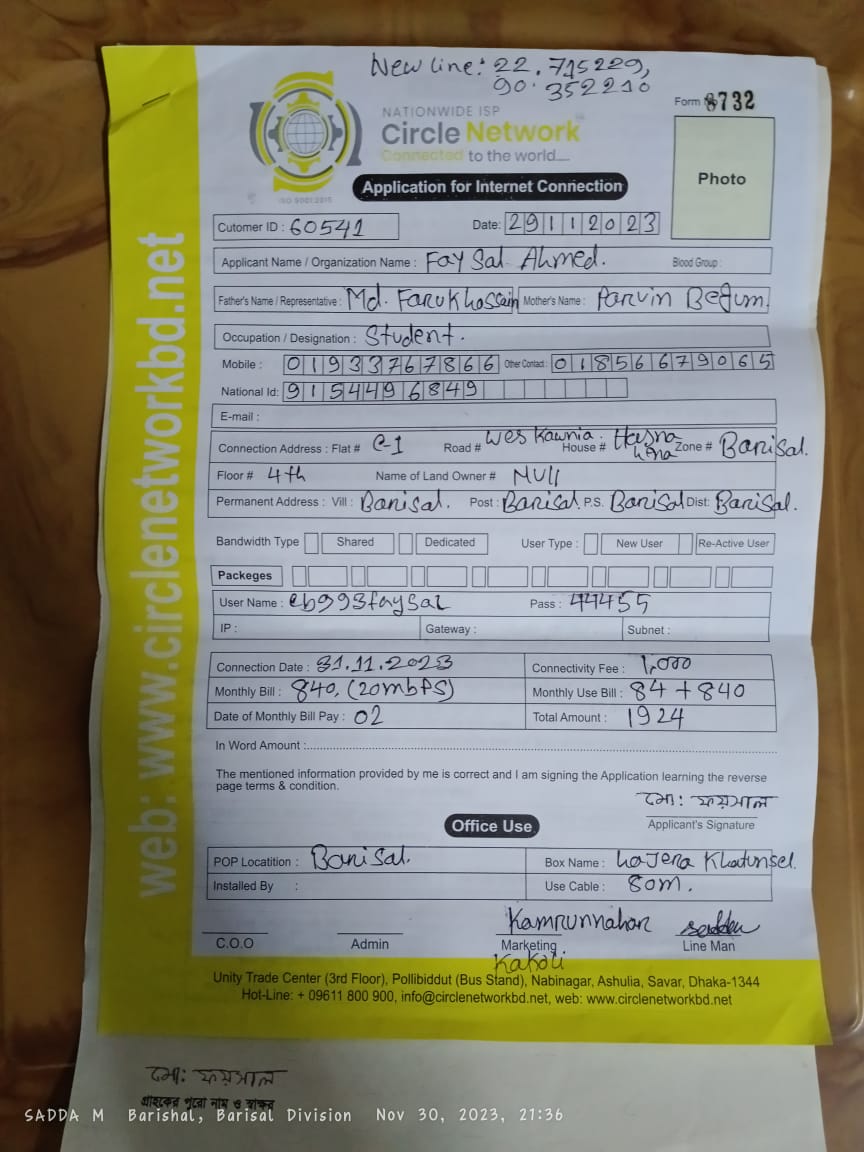 New line: 22.715229,
90.352210
Form № 8732
NATIONWIDE ISP
Circle Network
Connected to the world....
ISO 9001:2015
Application for Internet Connection
Photo
Cutomer ID : 60541
Date: 29112023
Applicant Name / Organization Name : Faysal Ahmed.
Blood Group :
Father's Name / Representative : Md. Faruk hossain
Mother's Name : Parvin Begum.
Occupation / Designation : Student.
Mobile : 01933767866
Other Contact : 01856679065
National Id: 9154496849
E-mail :
Connection Address : Flat # C-1 Road # Wes Kawnia. House # Hasna hena Zone # Barisal.
Floor # 4th Name of Land Owner # Null
Permanent Address : Vill : Barisal. Post : Barisal P.S. Barisal Dist: Barisal.
Bandwidth Type Shared Dedicated User Type : New User Re-Active User
Packeges
User Name : cb993faysal Pass : 44455
IP : Gateway : Subnet :
Connection Date : 31.11.2023 Connectivity Fee : 1,000
Monthly Bill : 840, (20mbps) Monthly Use Bill : 84 + 840
Date of Monthly Bill Pay : 02 Total Amount : 1924
In Word Amount :
The mentioned information provided by me is correct and I am signing the Application learning the reverse
page terms & condition.
মো: ফয়সাল
Applicant's Signature
Office Use
POP Locatition : Barisal. Box Name : hajera Khatun
Installed By : Use Cable : 80m.
Kamrunnahar
C.O.O Admin Marketing Line Man
Kakoli
Unity Trade Center (3rd Floor), Pollibiddut (Bus Stand), Nabinagar, Ashulia, Savar, Dhaka-1344
Hot-Line: + 09611 800 900, info@circlenetworkbd.net, web: www.circlenetworkbd.net
web: www.circlenetworkbd.net
মো: ফয়সাল
গ্রাহকের পুরো নাম ও স্বাক্ষর
SADDA M Barishal, Barisal Division Nov 30, 2023, 21:36